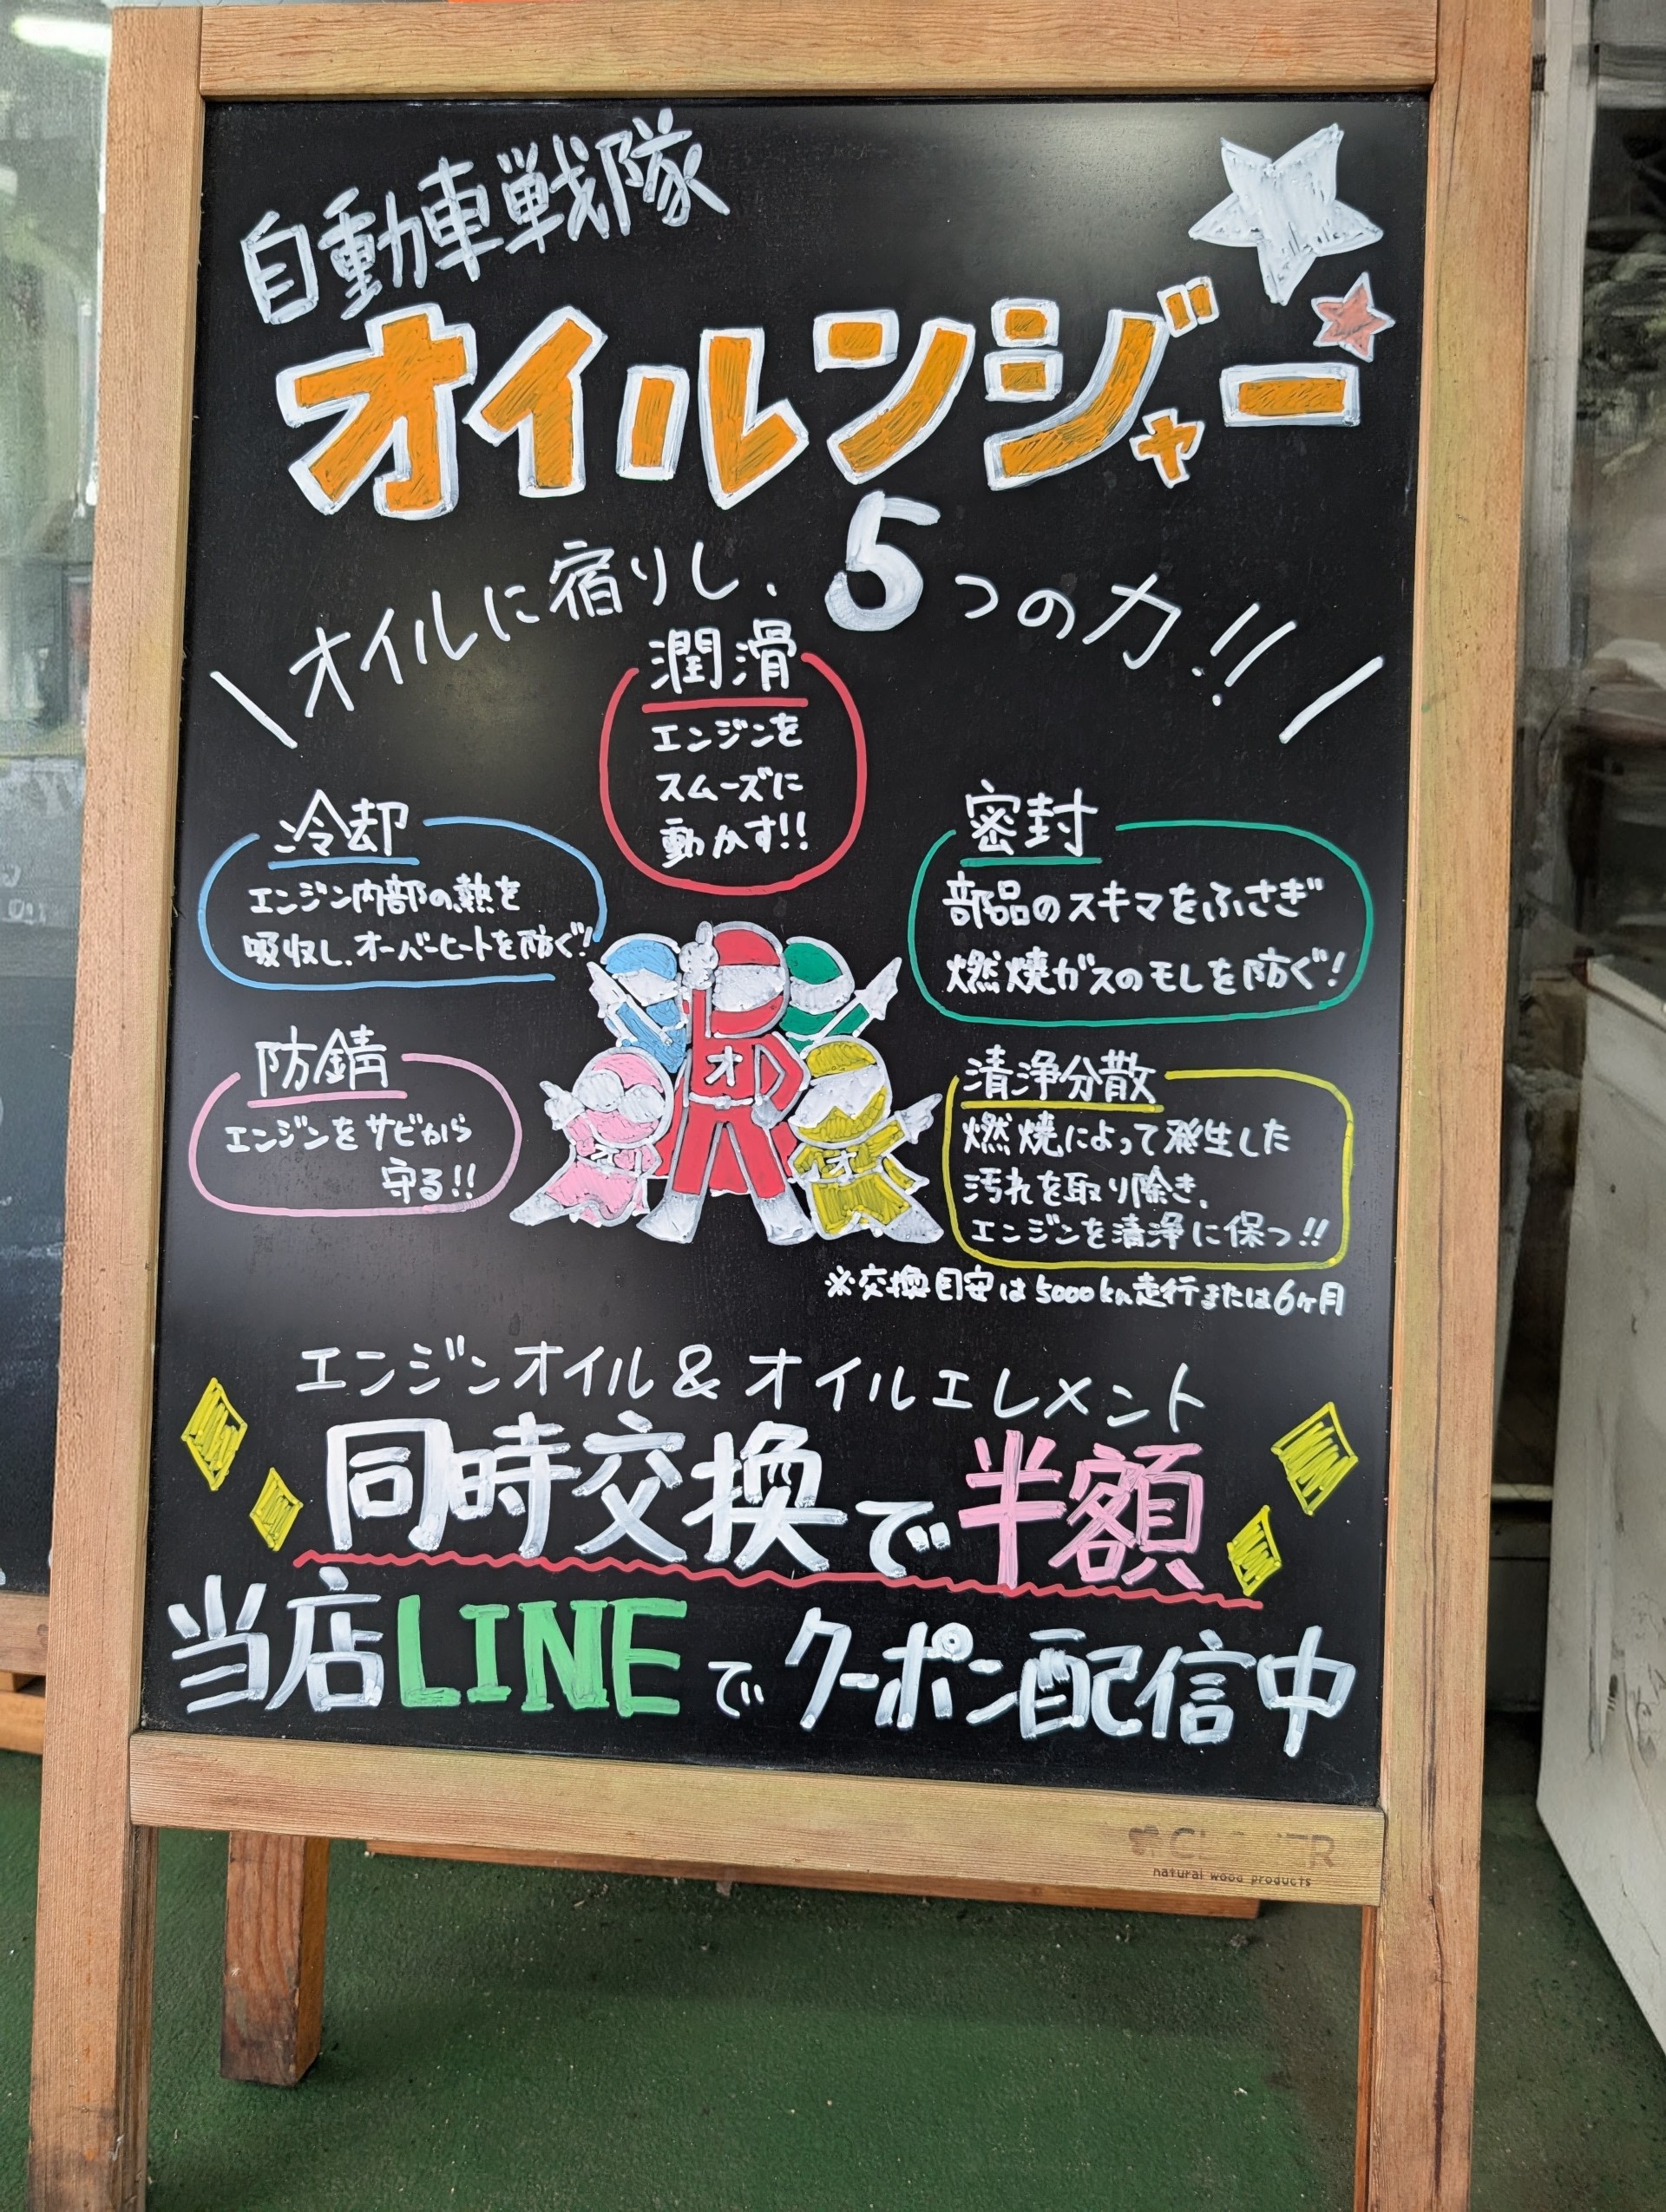 自動車戦隊
オイルンジャー
オイルに宿りし、5つの力!!
潤滑
エンジンを
スムーズに
動かす!!
冷却
エンジン内部の熱を
吸収し、オーバーヒートを防ぐ!
密封
部品のスキマをふさぎ
燃焼ガスのモレを防ぐ!
防錆
エンジンをサビから
守る!!
清浄分散
燃焼によって発生した
汚れを取り除き、
エンジンを清浄に保つ!!
オ
オ
※交換目安は5000km走行または6ヶ月
エンジンオイル&オイルエレメント
同時交換で半額
当店LINEでクーポン配信中
natural wood products